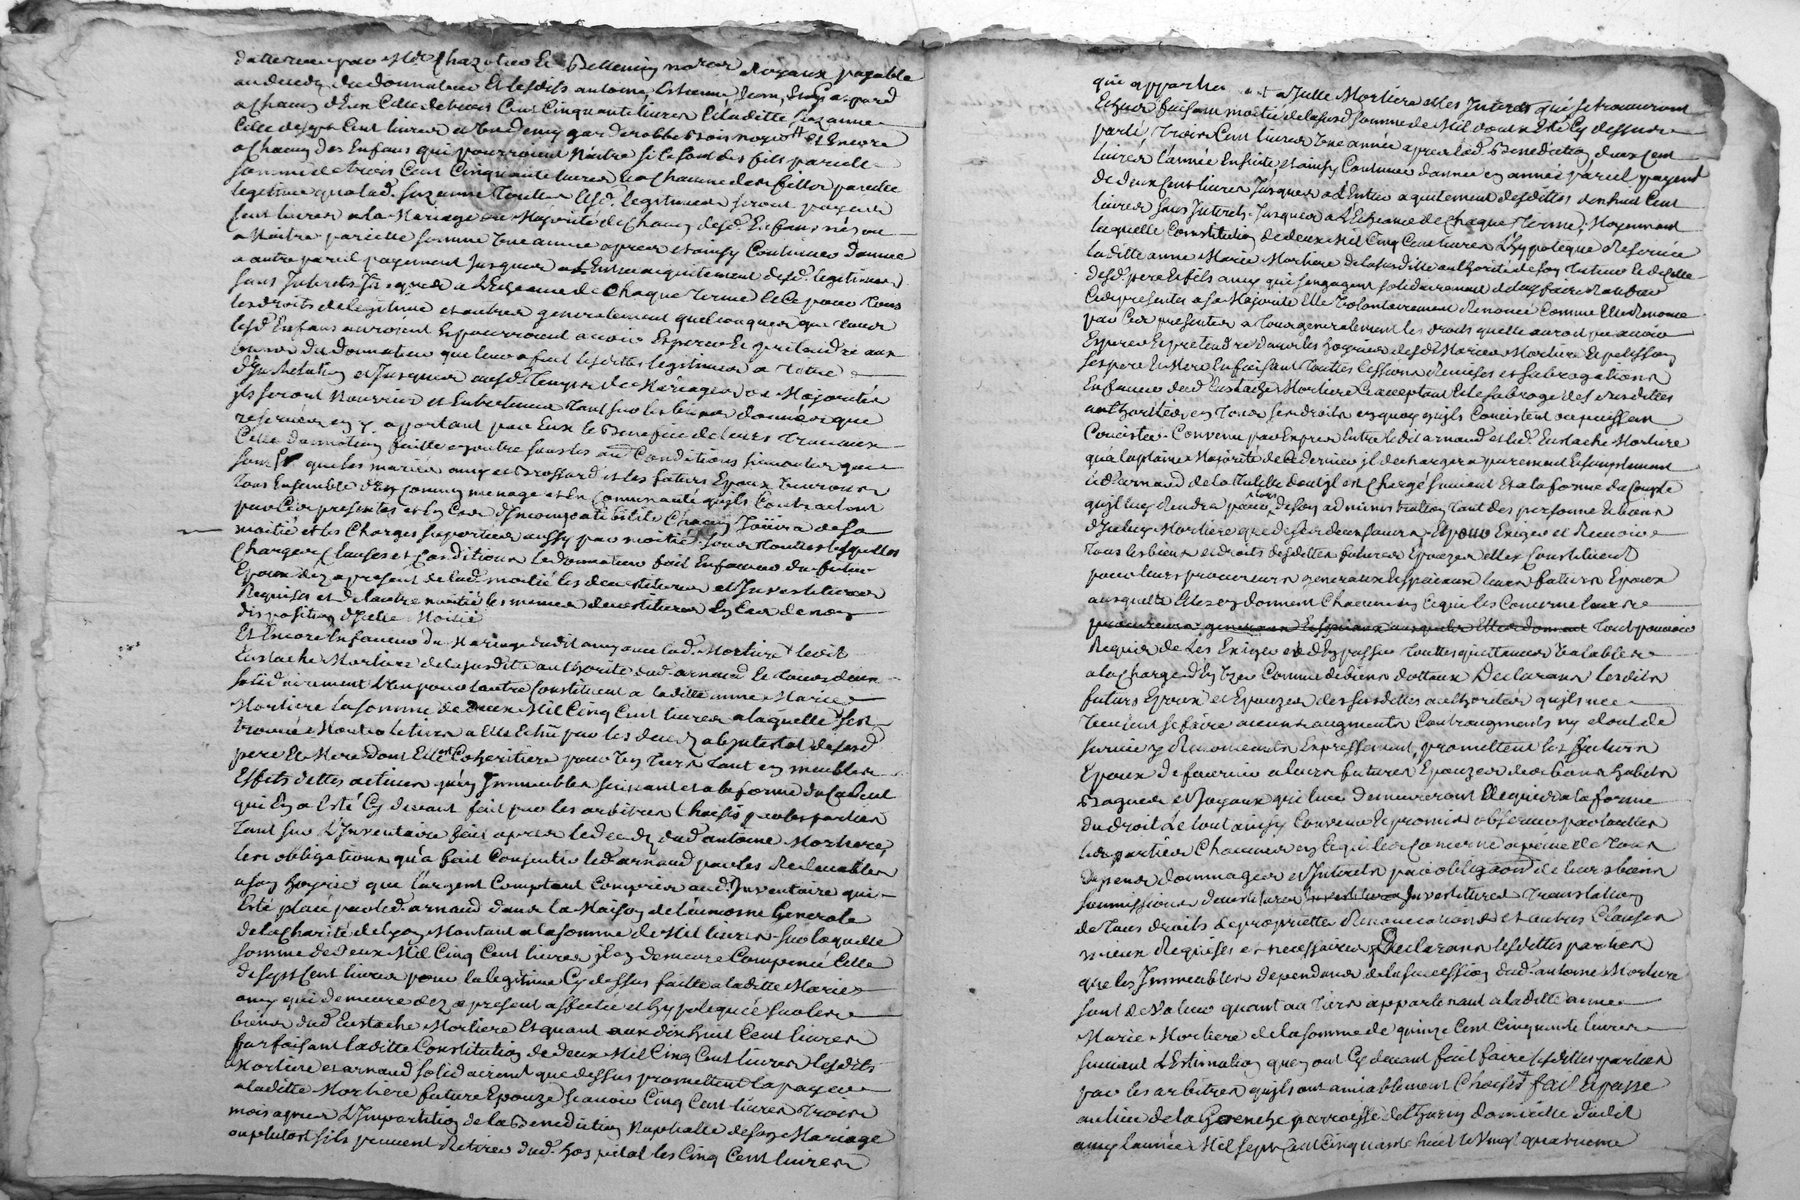 datte receu par Mtre Chazotier et Bellemin notres Royaux payable
au deceds du donnateur et lesdits antoine, Estienne, Jean, et Gaspard
a chacun d'eux celle de trois Cent Cinquante livres et laditte Suzanne
Celle de sept Cent livres et un demy garderobbe bois noyer et Encore
a chacun des Enfans qui pourroient Naitre si ce sont des fils pareille
somme de trois Cent Cinquante livres et a chacune des filles pareille
legitime qu'a lad. Suzanne toutes lesd. legitimes seront payées
Cent livres a la Mariage ou Majorité de chacun desd. Enfans nés ou
a Naitre pareille somme une année apres et ainsy Continuer d'année
a autre pareil payement jusques a l'Entier acquitement desd. legitimes
sans Interets jusques a l'Echeance de Chaque terme et Ce pour tous
les droits de legitime et autres generalement quelconques que tous
lesd. Enfans auroient et pourroient avoir Esperer et pretendre aux
biens du donnateur que leur a fait lesdittes legitimes a titre
d'Institution et jusques auxd. temps de Mariages ou Majorités
ils seront Nourris et Entretenus tant sur les biens donnés que
reservés en y aportant par Eux le Benefice de leurs travaux
Cette donnation faitte en outre sous les Conditions suivantes que
sont que les mariés amy et Brossard et les futurs Epoux vivront
tous Ensemble d'un commun menage et En Communauté qu'ils Contractent
par Ces presentes et En Cas d'Incompatibilité Chacun Joüira de sa
moitié et les Charges suportées aussy par moitié. sous toutes lesquelles
Charges Clauses et Conditions le donnateur fait En faveur du futur
Epoux dez a present de lad. moitié les devestitures et Investitures
Requises et de l'autre moitié les memes devestitures En Cas de non
disposition d'jcelle Moitié
Et Encore En faveur du Mariage dudit amy avec lad. Mortiere ledit
Eustache Mortiere de la susditte authorité dud. arnaud le tous deux
solidairement l'un pour l'autre Constituent a laditte anne Marie
Mortiere la somme de Deux Mil Cinq Cent livres a laquelle s'est
trouvé Monter le tiers a Elle Echu par les deceds abjntestat de sesd.
pere Et Mere dont Elle est Coheritiere pour un tiers tant en meubles
Effets dettes actives qu'en Immeubles suivant et a la forme du Calcul
qui En a Esté Cy devant fait par les arbitres Choisis par les parties
tant sur l'Inventaire fait apres le deceds dud. antoine Mortiere,
les obligations qu'a fait Consentir led. arnaud par les Redevables
a son hoyrie que l'argent Comptant Compris aud. Inventaire qui a
Esté placé par led. arnaud dans la Maison de l'aumone Generale
de la Charité de Lyon Montant a la somme de Mil livres. sur laquelle
somme de Deux Mil Cinq Cent livres il en demeure Compensé Celle
de sept Cent livres pour la legitime Cy dessus faitte a laditte Marie
amy qui demeure dez a present affectée et hypotequée sur les
biens dud. Eustache Mortiere Et quant aux dix huit Cent livres
parfaisant laditte Constitution de deux Mil Cinq Cent livres lesdits
Mortiere et arnaud solidairement que dessus promettent la payer
a laditte Mortiere future Epouze sçavoir Cinq Cent livres trois
mois apres l'Impartition de la Benediction Nuptialle de son Mariage
ou plutost s'ils peuvent Retirer dud. hospital les Cinq Cent livres
qui appartiennent a Jcelle Mortiere et les Interets qui se trouveront
Echus faisant moitié de la susd. somme de Mil dont Est Cy dessus
parlé, trois Cent livres une année apres lad. Benediction, deux Cent
livres l'année Ensuite et ainsy Continuer d'année en année pareil payement
de deux Cent livres jusques a l'Entier aquitement desdittes dix huit Cent
livres sans Interets jusques a l'Echeance de Chaque terme, Moyennant
laquelle Constitution de deux Mil Cinq Cent livres l'hypoteque Reservée
laditte anne Marie Mortiere de la susditte authorité de son tuteur Et de Celle
desd. pere et fils amy qui s'engagent solidairement de luy faire Ratifier
Ces presentes a sa Majorité Elle volontairement Renonce Comme Elle Renonce
par Ces presentes a tous generalement les droits qu'elle auroit pu avoir
Esperer Et pretendre dans les hoyries desd. Mariés Mortiere Et pelisson
ses pere Et Mere En faisant toutes Cessions Remises et subrogations
En faveur dud. Eustache Mortiere Ce acceptant Et le subroge desd. susdittes
authorités en tous ses droits en quoy qu'ils Consistent ou puissent
Concister. Convenu par Exprès Entre ledit arnaud et led. Eustache Mortiere
qu'a la plaine Majorité de Ce dernier il dechargera purement Et simplement
led. arnaud de la tutelle dont jl est Chargé suivant Et a la forme du Compte
qu'il luy Rendra pour lors de son administration tant des personne Et biens
d'jceluy Mortiere que de ses deux sœurs. Et pour Exiger et Recevoir
tous les biens et droits desdittes futures Epouzes Elles Constituent
pour leurs procureurs generaux Et speciaux leurs futurs Epoux
auxquels Elles en donnent Chacune en Ce qui les Concerne leurs
procureurs generaux Et speciaux auxquels Elles donnent tout pouvoir
Requis de Les Exiger et d'En passer toutes quittances valables
a la Charge d'En Uzer Comme de biens dottaux. Declarans lesdits
futurs Epoux et Epouzes des susdittes authorités qu'ils ne
veulent se faire aucuns augments Contraugments ny dont de
survie y Renoncants Expressement, promettent les futurs
Epoux de fournir a leurs futures Epouzes des bons habits
Bagues et Joyaux qui leur demeureront acquis a la forme
du droit Le tout ainsy Convenu Et promis observer par toutes
les parties Chacunes en Ce qui les Concerne a peine de tous
depens dommages et Interets par obligation de leurs biens
soumissions devestitures investitures Investitures translation
de tous droits de propriette Renonciations et autres Clauses
mieux Requises et necessaires, Declarans lesdittes parties
que les Immeubles dependans de la succession dud. antoine Mortiere
sont de valeur quant au tiers appartenant a laditte anne
Marie Mortiere de la somme de quinze Cent Cinquante livres
suivant l'Estimation que en ont Cy devant fait faire lesdittes parties
par les arbitres qu'ils ont amiablement Choisis fait Et passé
au lieu de la Gorenche parroisse de Thurin domicille dudit
amy l'année Mil sept Cent Cinquante huit le vingt quatrieme